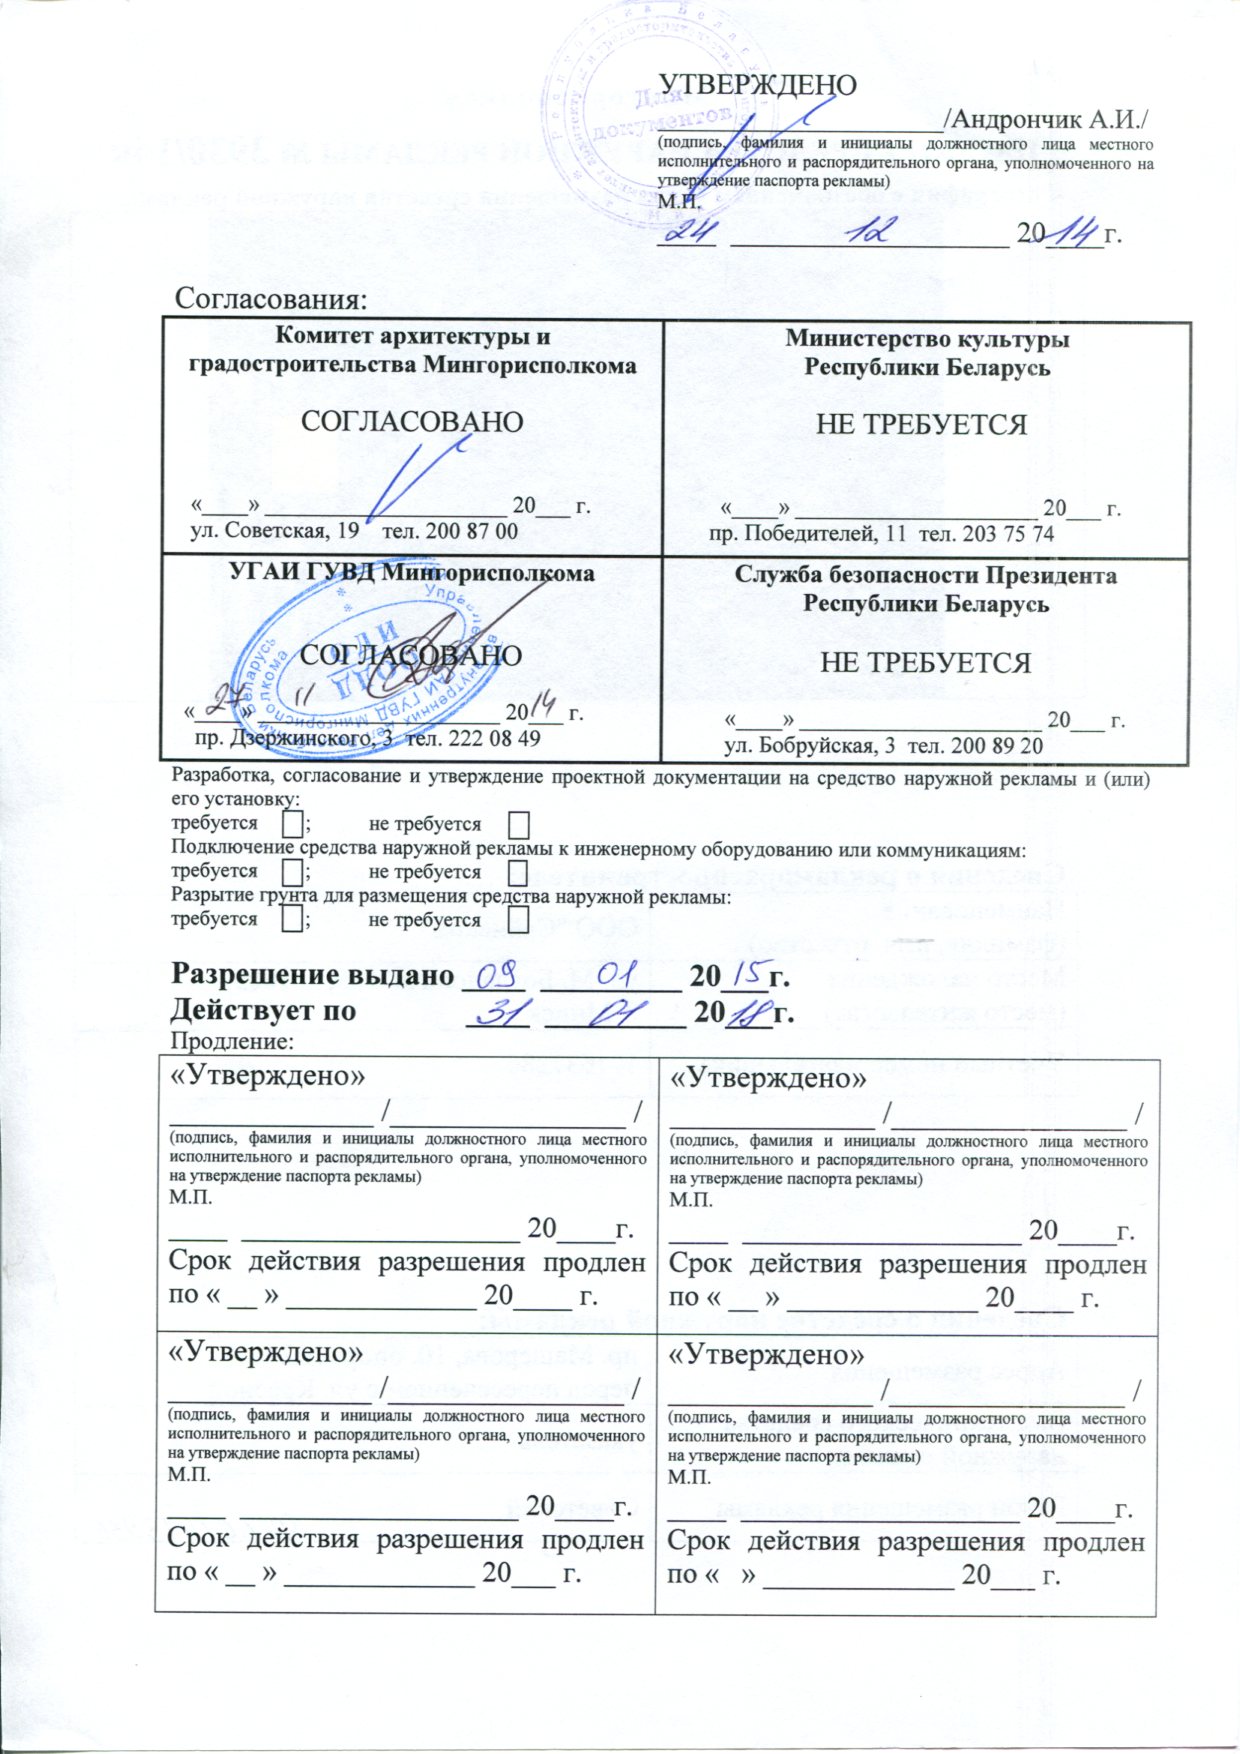 УТВЕРЖДЕНО
Для
документов
____________________/Андрончик А.И./
(подпись, фамилия и инициалы должностного лица местного
исполнительного и распорядительного органа, уполномоченного на
утверждение паспорта рекламы)
М.П.
24 12 2014г.
Согласования:
Комитет архитектуры и
градостроительства Мингорисполкома
СОГЛАСОВАНО
«____» ____________________ 20___ г.
ул. Советская, 19 тел. 200 87 00
Министерство культуры
Республики Беларусь
НЕ ТРЕБУЕТСЯ
«____» ____________________ 20___ г.
пр. Победителей, 11 тел. 203 75 74
УГАИ ГУВД Мингорисполкома
СОГЛАСОВАНО
«27» 11 2014 г.
пр. Дзержинского, 3 тел. 222 08 49
Служба безопасности Президента
Республики Беларусь
НЕ ТРЕБУЕТСЯ
«____» ____________________ 20___ г.
ул. Бобруйская, 3 тел. 200 89 20
Разработка, согласование и утверждение проектной документации на средство наружной рекламы и (или)
его установку:
требуется ; не требуется
Подключение средства наружной рекламы к инженерному оборудованию или коммуникациям:
требуется ; не требуется
Разрытие грунта для размещения средства наружной рекламы:
требуется ; не требуется
Разрешение выдано 09 01 2015г.
Действует по 31 01 2018г.
Продление:
«Утверждено»
______________ /________________ /
(подпись, фамилия и инициалы должностного лица местного
исполнительного и распорядительного органа, уполномоченного
на утверждение паспорта рекламы)
М.П.
____ ___________________ 20____г.
Срок действия разрешения продлен
по « __ » _____________ 20____ г.
«Утверждено»
______________ /________________ /
(подпись, фамилия и инициалы должностного лица местного
исполнительного и распорядительного органа, уполномоченного
на утверждение паспорта рекламы)
М.П.
____ ___________________ 20____г.
Срок действия разрешения продлен
по « __ » _____________ 20____ г.
«Утверждено»
______________ /________________ /
(подпись, фамилия и инициалы должностного лица местного
исполнительного и распорядительного органа, уполномоченного
на утверждение паспорта рекламы)
М.П.
____ ___________________ 20____г.
Срок действия разрешения продлен
по « __ » _____________ 20___ г.
«Утверждено»
______________ /________________ /
(подпись, фамилия и инициалы должностного лица местного
исполнительного и распорядительного органа, уполномоченного
на утверждение паспорта рекламы)
М.П.
____ ___________________ 20____г.
Срок действия разрешения продлен
по « » _____________ 20___ г.